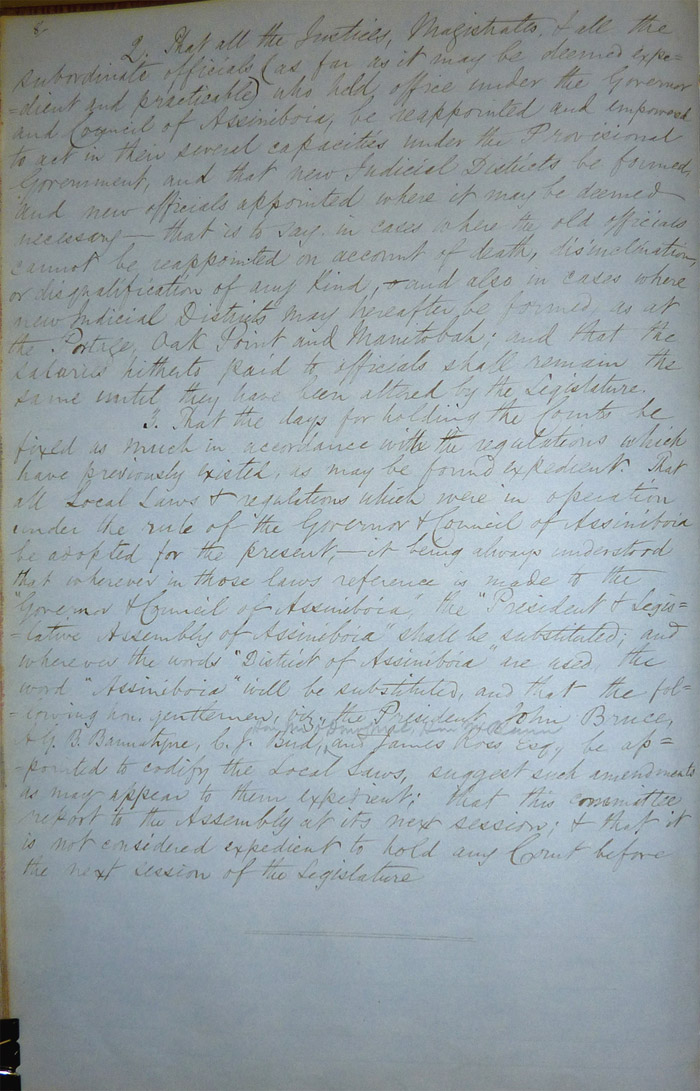 8
2. That all the Justices, Magistrates, & all the
subordinate officials (as far as it may be deemed expe=
=dient and practicable) who held office under the Governor
and Council of Assiniboia, be reappointed and empowered
to act in their several capacities under the Provisional
Government, and that new Judicial Districts be formed,
and new officials appointed where it may be deemed
necessary — that is to say in cases where the old officials
cannot be reappointed on account of death, disinclination,
or disqualification of any kind, & and also in cases where
new Judicial Districts may hereafter be formed, as at
the Portage, Oak Point and Manitobah; and that the
salaries hitherto paid to officials shall remain the
same until they have been altered by the Legislature.
3. That the days for holding the Courts be
fixed as much in accordance with the regulations which
have previously existed, as may be found expedient. That
all Local Laws & regulations which were in operation
under the rule of the Governor & Council of Assiniboia
be adopted for the present, — it being always understood
that wherever in those laws reference is made to the
"Governor & Council of Assiniboia", the "President & Legis=
=lative Assembly of Assiniboia" shall be substituted; and
wherever the words "District of Assiniboia" are used, the
word "Assiniboia" will be substituted, and that the fol=
=lowing hon. gentlemen, viz., the President, John Bruce,
A. G. B. Bannatyne, C. J. Bird, and James Ross Esq. be ap=
=pointed to codify the Local Laws, suggest such amendments
as may appear to them expedient; that this committee
report to the Assembly at its next session; & that it
is not considered expedient to hold any Court before
the next session of the Legislature